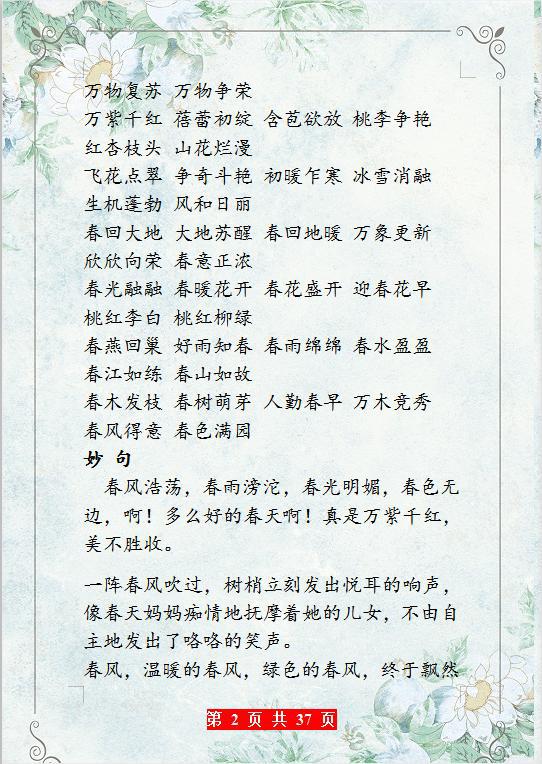 万物复苏 万物争荣
万紫千红 蓓蕾初绽 含苞欲放 桃李争艳
红杏枝头 山花烂漫
飞花点翠 争奇斗艳 初暖乍寒 冰雪消融
生机蓬勃 风和日丽
春回大地 大地苏醒 春回地暖 万象更新
欣欣向荣 春意正浓
春光融融 春暖花开 春花盛开 迎春花早
桃红李白 桃红柳绿
春燕回巢 好雨知春 春雨绵绵 春水盈盈
春江如练 春山如故
春木发枝 春树萌芽 人勤春早 万木竞秀
春风得意 春色满园
妙 句
春风浩荡，春雨滂沱，春光明媚，春色无
边，啊！多么好的春天啊！真是万紫千红，
美不胜收。
一阵春风吹过，树梢立刻发出悦耳的响声，
像春天妈妈痴情地抚摩着她的儿女，不由自
主地发出了咯咯的笑声。
春风，温暖的春风，绿色的春风，终于飘然
第 2 页 共 37 页